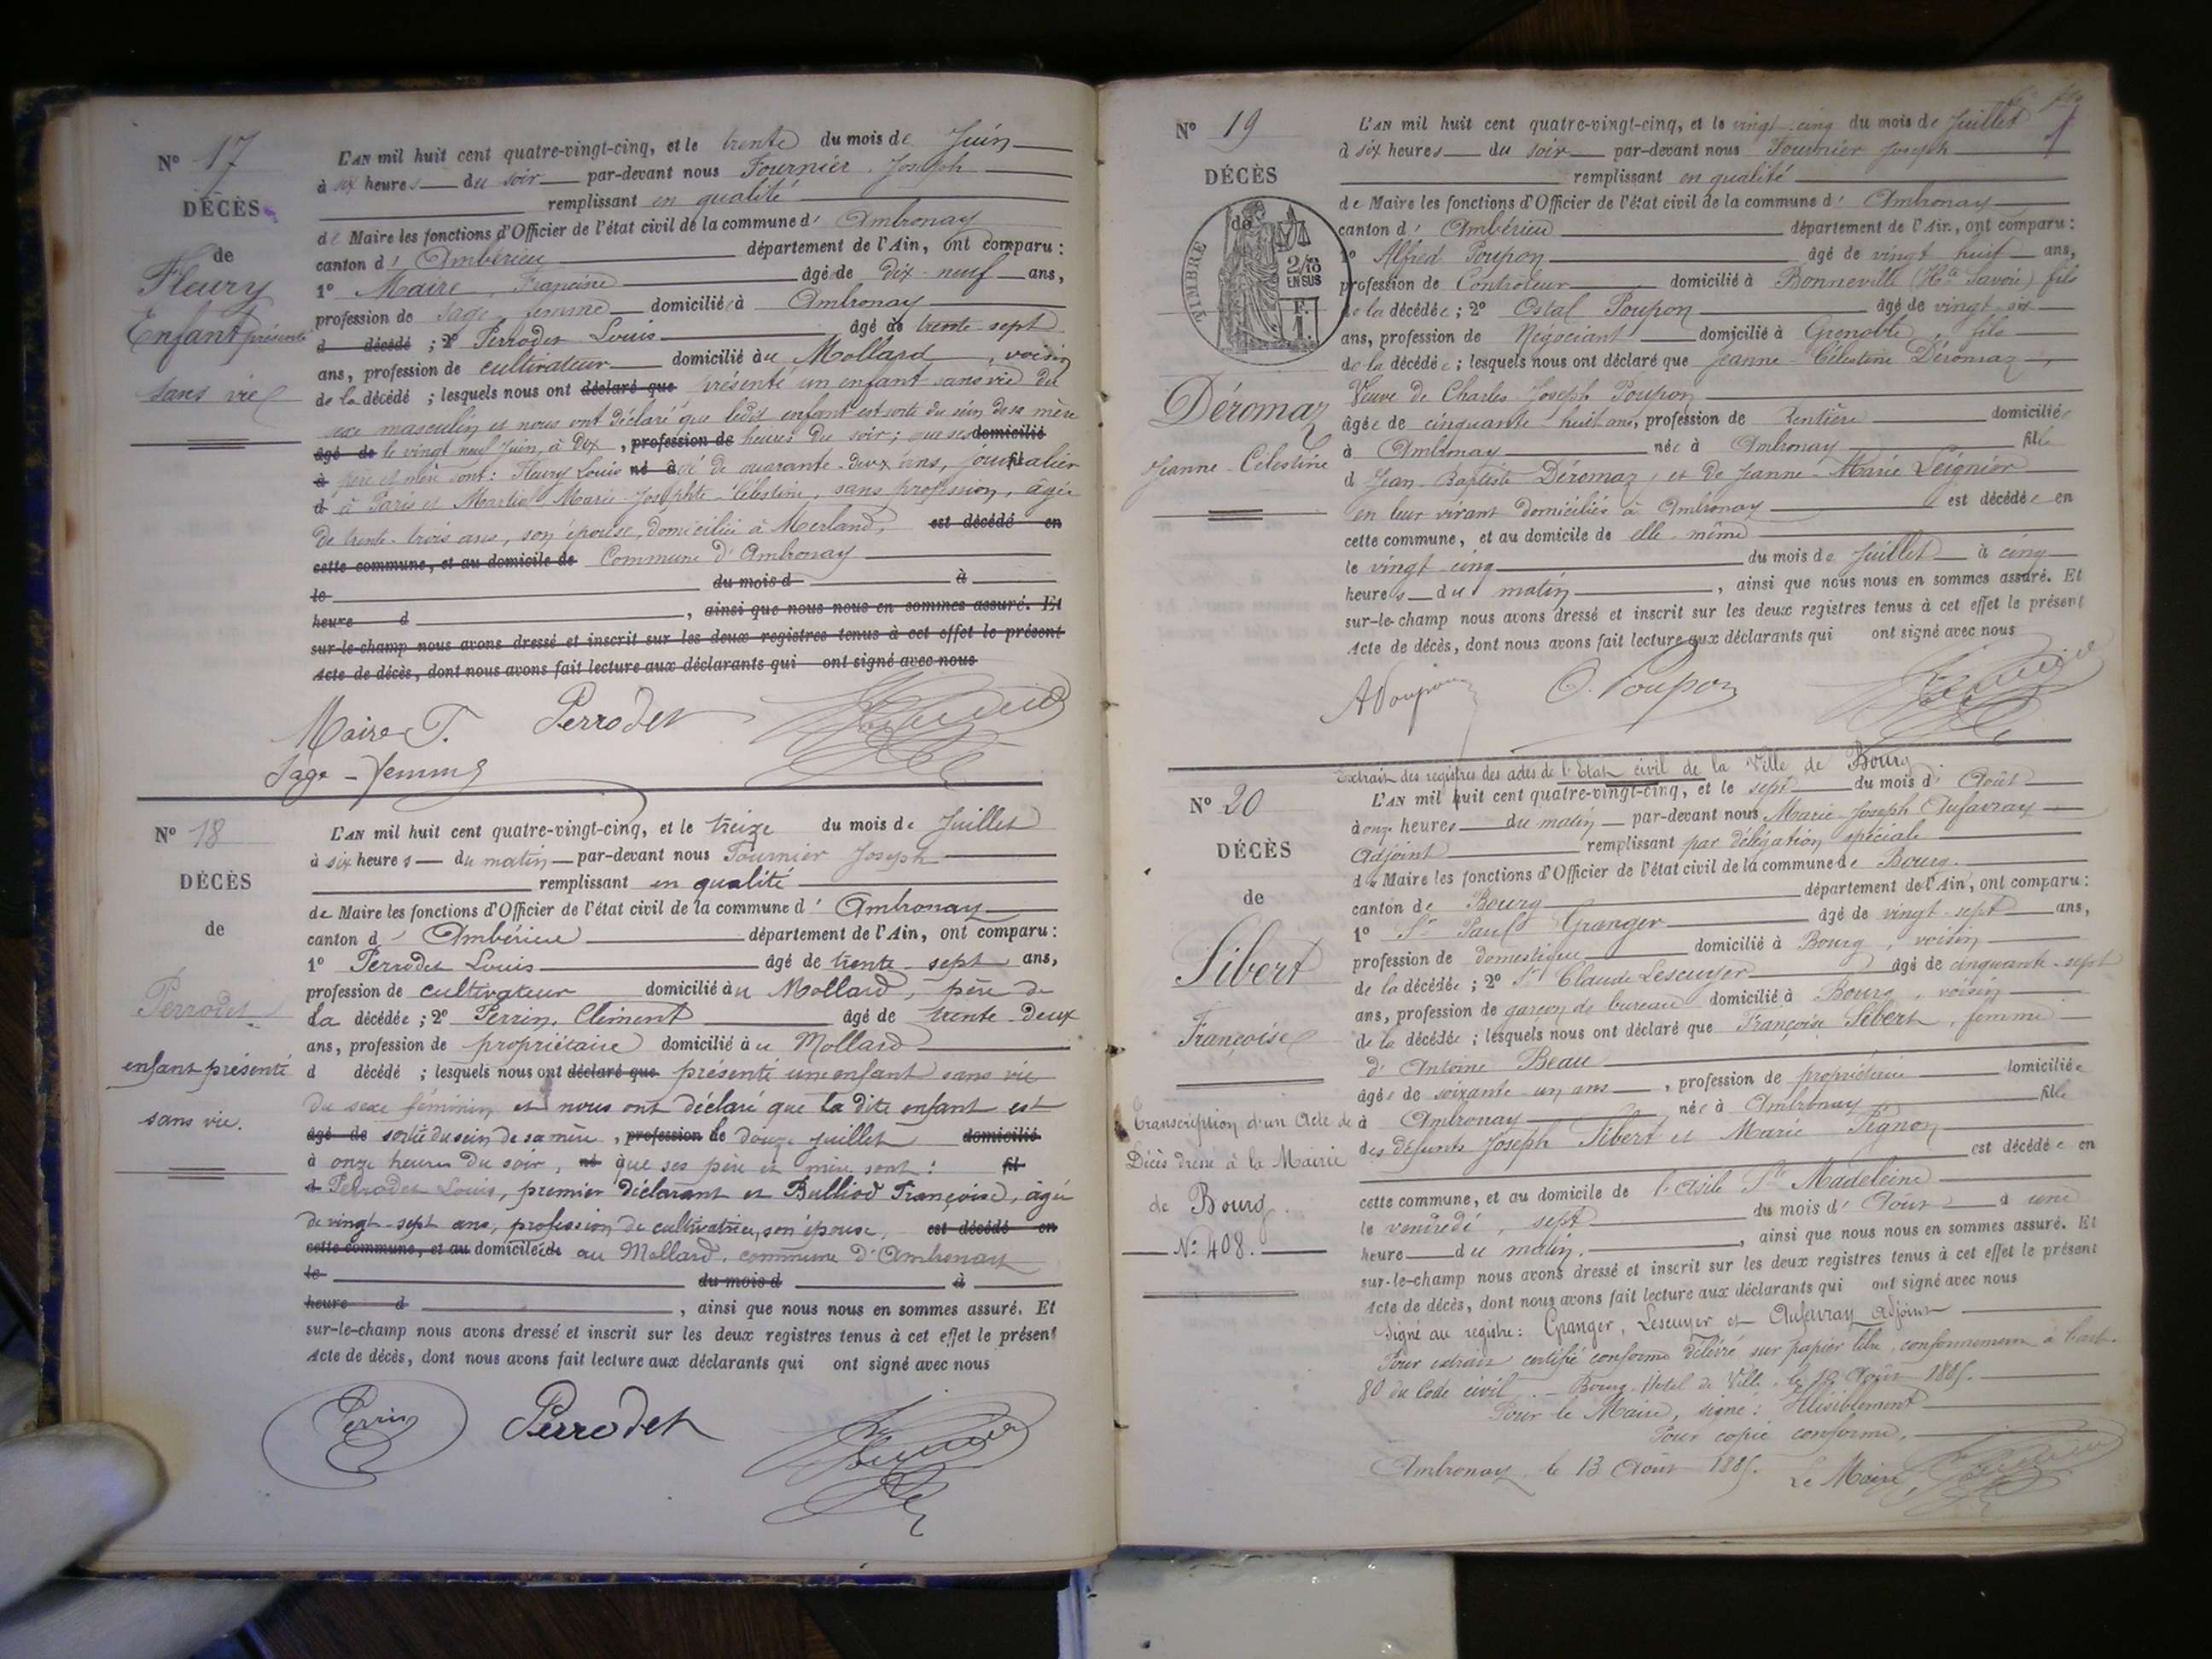 N° 17
DÉCÈS
de
Fleury
Enfant présenté
sans vie
L'AN mil huit cent quatre-vingt-cinq, et le trente du mois de Juin
à six heures du soir par-devant nous Fournier Joseph
remplissant en qualité
de Maire les fonctions d'Officier de l'état civil de la commune d' Ambronay
canton d' Ambérieu département de l'Ain, ont comparu :
1° Maire, Francine âgé de dix-neuf ans,
profession de Sage-femme domicilié à Ambronay
d décédé ; 2° Perrodet Louis âgé de trente-sept
ans, profession de cultivateur domicilié au Mollard, voisin
de la décédé ; lesquels nous ont déclaré que présenté un enfant sans vie du
sexe masculin et nous ont déclaré que ledit enfant est sorti du sein de sa mère
âgé de le vingt neuf Juin, à dix , profession de heures du soir ; que ses domicilié
à père et mère sont : Fleury Louis né à âgé de quarante-deux ans, journalier fil
d à Paris et Martial Marie-Josephte-Célestine, sans profession, âgée
de trente-trois ans, son épouse, domiciliée à Merland, est décédé en
cette commune, et au domicile de Commune d'Ambronay
le du mois d à
heure d , ainsi que nous nous en sommes assuré. Et
sur-le-champ nous avons dressé et inscrit sur les deux registres tenus à cet effet le présent
Acte de décès, dont nous avons fait lecture aux déclarants qui ont signé avec nous
Maire F. Perrodet
Sage-femme
N° 18
DÉCÈS
de
Perrodet
enfant présenté
sans vie.
L'AN mil huit cent quatre-vingt-cinq, et le treize du mois de Juillet
à six heures du matin par-devant nous Fournier Joseph
remplissant en qualité
de Maire les fonctions d'Officier de l'état civil de la commune d' Ambronay
canton d' Ambérieu département de l'Ain, ont comparu :
1° Perrodet Louis âgé de trente-sept ans,
profession de cultivateur domicilié au Mollard, père de
la décédée ; 2° Perrin, Clément âgé de trente-deux
ans, profession de propriétaire domicilié au Mollard
d décédé ; lesquels nous ont déclaré que présenté une enfant sans vie
du sexe féminin et nous ont déclaré que la dite enfant est
âgé de sortie du sein de sa mère , profession de le douze juillet domicilié
à onze heures du soir, né que ses père et mère sont : fil
d Perrodet Louis, premier déclarant et Bulliod Françoise, âgée
de vingt-sept ans, profession de cultivatrice, son épouse, est décédé en
cette commune, et au domiciliés au Mollard, commune d'Ambronay
le du mois d à
heure d , ainsi que nous nous en sommes assuré. Et
sur-le-champ nous avons dressé et inscrit sur les deux registres tenus à cet effet le présent
Acte de décès, dont nous avons fait lecture aux déclarants qui ont signé avec nous
Perrin Perrodet
N° 19
DÉCÈS
de
TIMBRE
2/10
EN SUS
F.
1.
Déromaz
Jeanne-Célestine
L'AN mil huit cent quatre-vingt-cinq, et le vingt-cinq du mois de Juillet
à six heures du soir par-devant nous Fournier Joseph
remplissant en qualité
de Maire les fonctions d'Officier de l'état civil de la commune d' Ambronay
canton d' Ambérieu département de l'Ain, ont comparu :
1° Alfred Poupon âgé de vingt huit ans,
profession de Contrôleur domicilié à Bonneville (Hte Savoie) fils
de la décédée ; 2° Ostal Poupon âgé de vingt-six
ans, profession de Négociant domicilié à Grenoble, fils
de la décédée ; lesquels nous ont déclaré que Jeanne-Célestine Déromaz,
Veuve de Charles-Joseph Poupon
âgée de cinquante-huit ans, profession de Rentière domiciliée
à Ambronay née à Ambronay fille
d Jean-Baptiste Déromaz, et de Jeanne-Marie Leignier
en leur vivant domiciliés à Ambronay est décédée en
cette commune, et au domicile de elle-même
le vingt-cinq du mois de Juillet à cinq
heures du matin , ainsi que nous nous en sommes assuré. Et
sur-le-champ nous avons dressé et inscrit sur les deux registres tenus à cet effet le présent
Acte de décès, dont nous avons fait lecture aux déclarants qui ont signé avec nous
A Poupon O. Poupon
N° 20
DÉCÈS
de
Sibert
Françoise
Transcription d'un Acte de
Décès dressé à la Mairie
de Bourg.
N° 408.
Extrait des registres des actes de l'Etat civil de la Ville de Bourg.
L'AN mil huit cent quatre-vingt-cinq, et le sept du mois d' Août
à onze heures du matin par-devant nous Marie-Joseph Dufavray
Adjoint remplissant par délégation spéciale
de Maire les fonctions d'Officier de l'état civil de la commune de Bourg.
canton de Bourg département de l'Ain, ont comparu :
1° Sr Paul Granger âgé de vingt-sept ans,
profession de domestique domicilié à Bourg, voisin
de la décédée ; 2° Sr Claude Lescuyer âgé de cinquante-sept
ans, profession de garçon de bureau domicilié à Bourg, voisin
de la décédée ; lesquels nous ont déclaré que Françoise Sibert, femme
d'Antoine Beau
âgée de soixante-un ans , profession de propriétaire domiciliée
à Ambronay née à Ambronay fille
des défunts Joseph Sibert et Marie Pignon
est décédée en
cette commune, et au domicile de l'Asile Ste Madeleine
le vendredi, sept du mois d' Août à une
heure du matin. , ainsi que nous nous en sommes assuré. Et
sur-le-champ nous avons dressé et inscrit sur les deux registres tenus à cet effet le présent
Acte de décès, dont nous avons fait lecture aux déclarants qui ont signé avec nous
Signé au registre : Granger, Lescuyer et Dufavray adjoint
Pour extrait certifié conforme délivré sur papier libre, conformément à l'art.
80 du Code civil. - Bourg, Hôtel de Ville, le 10 Août 1885.
Pour le Maire, signé : Illisiblement
Pour copie conforme,
Ambronay, le 13 Août 1885. Le Maire,